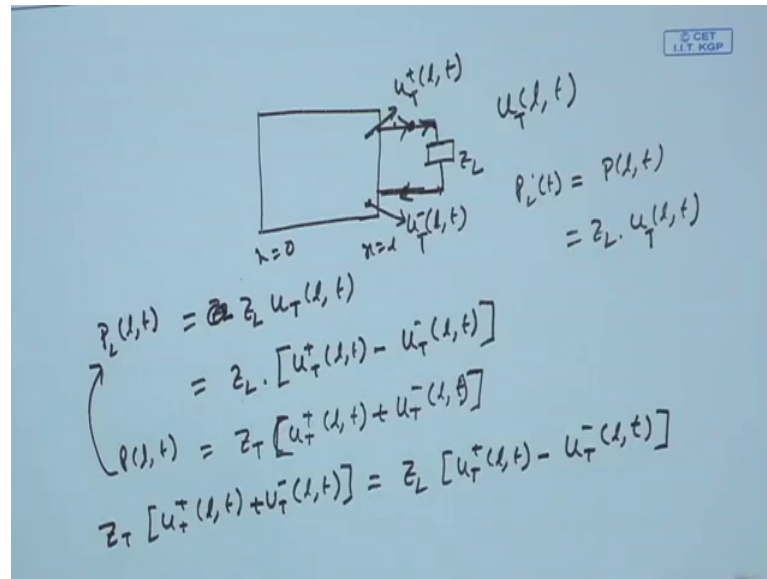 © CET
I.I.T. KGP
u_T^+(l,t)
u_T(l,t)
Z_L
P_L(t) = P(l,t)
= Z_L . u_T(l,t)
u_T^-(l,t)
x=0
x=l
P_L(l,t) = Z_L u_T(l,t)
= Z_L . [u_T^+(l,t) - u_T^-(l,t)]
P(l,t) = Z_T [u_T^+(l,t) + u_T^-(l,t)]
Z_T [u_T^+(l,t) + u_T^-(l,t)] = Z_L [u_T^+(l,t) - u_T^-(l,t)]